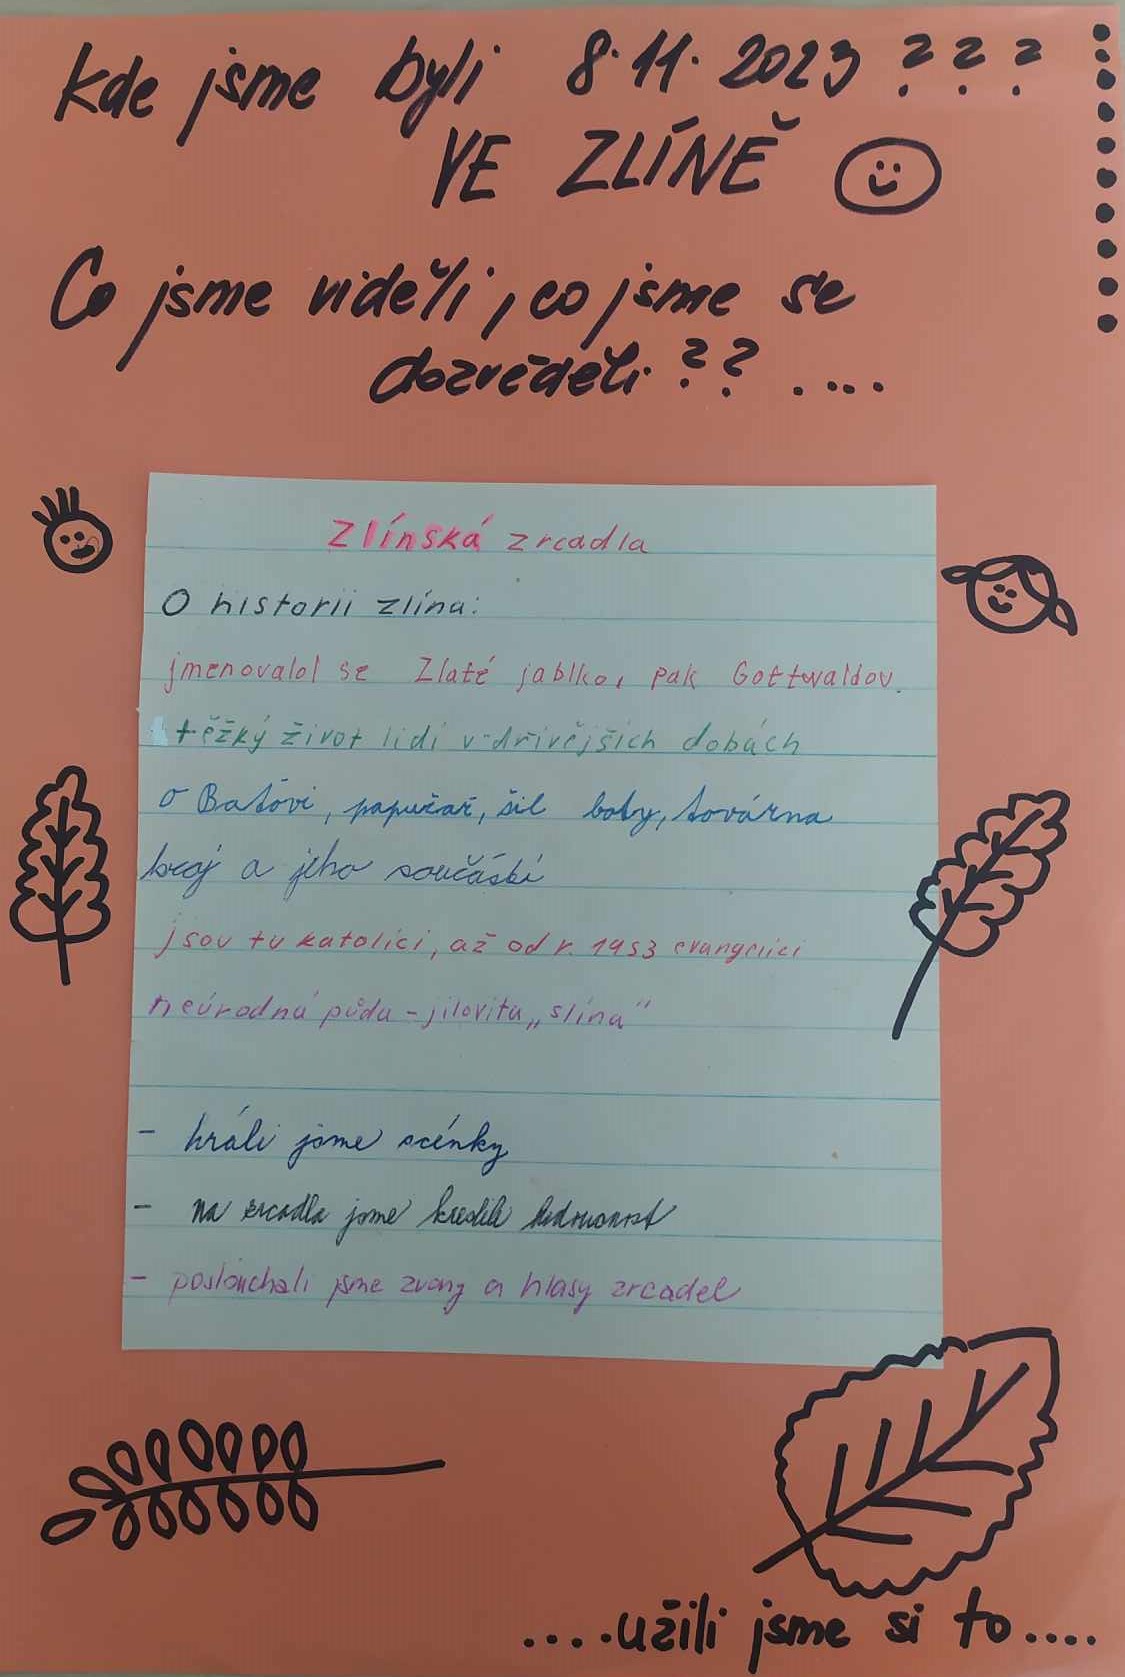 kde jsme byli 8.11.2023 ???
VE ZLÍNĚ
Co jsme viděli, co jsme se
dozvěděli ?? ....
Zlínská zrcadla
O historii zlína:
jmenovalol se Zlaté jablko, pak Gottwaldov.
těžký život lidí v dřivějších dobách
o Baťovi, papučář, šil boty, továrna
kroj a jeho součásti
jsou tu katolíci, až od r. 1953 evangelíci
neúrodná půda - jílovita „slína“
- hráli jsme scénky
- na zrcadla jsme kreslili
- poslouchali jsme zvony a hlasy zrcadel
....užili jsme si to....